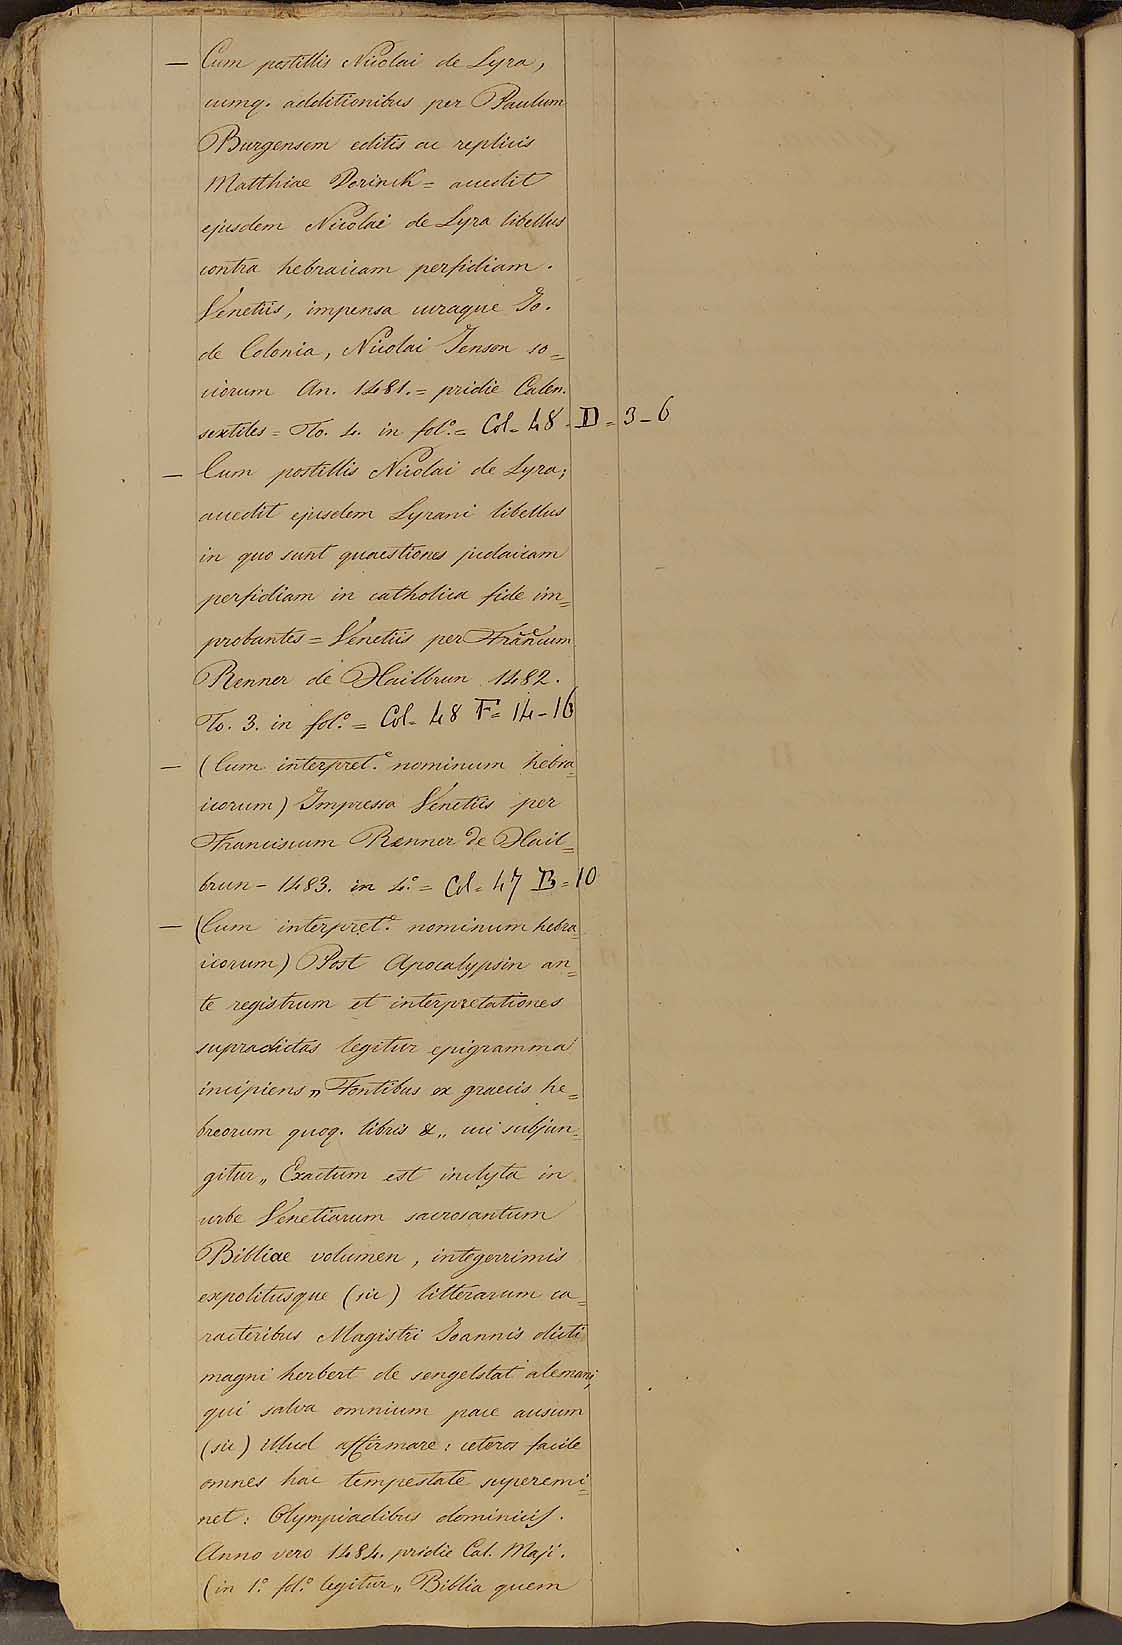 — Cum postillis Nicolai de Lyra,
cumq. additionibus per Paulum
Burgensem editis ac replicis
Matthiae Dorinck = accedit
ejusdem Nicolai de Lyra libellus
contra hebraicam perfidiam.
Venetiis, impensa curaque Jo.
de Colonia, Nicolai Jenson so=
ciorum An. 1481. = pridie Calen.
sextiles = To. 4. in fol.º = Col. 48. D = 3-6
— Cum postillis Nicolai de Lyra;
accedit ejusdem Lyrani libellus
in quo sunt quaestiones judaicam
perfidiam in catholica fide im=
probantes = Venetiis per Franc̃um
Renner de Hailbrun 1482.
To. 3. in fol.º = Col. 48 F = 14-16
— (Cum interpret.e nominum hebra=
icorum) Impressa Venetiis per
Franciscum Renner de Hail=
brun - 1483. in 4.º = Col = 47 B = 10
— (Cum interpret.e nominum hebra=
icorum) Post Apocalypsin an=
te registrum et interpretationes
supradictas legitur epigramma
incipiens „ Fontibus ex graecis he=
breorum quoq. libris & „ cui subjun=
gitur „ Exactum est inclyta in
urbe Venetiarum sacrosantum
Bibliae volumen, integerrimis
expolitusque (sic) litterarum ca=
racteribus Magistri Joannis dicti
magni herbert de sengelstat alemani,
qui salva omnium pace ausum
(sic) illud affirmare: ceteros facile
omnes hac tempestate superemi=
net: Olympiadibus dominicis.
Anno vero 1484. pridie Cal. Maji.
(in 1.º fol.º legitur „ Biblia quem